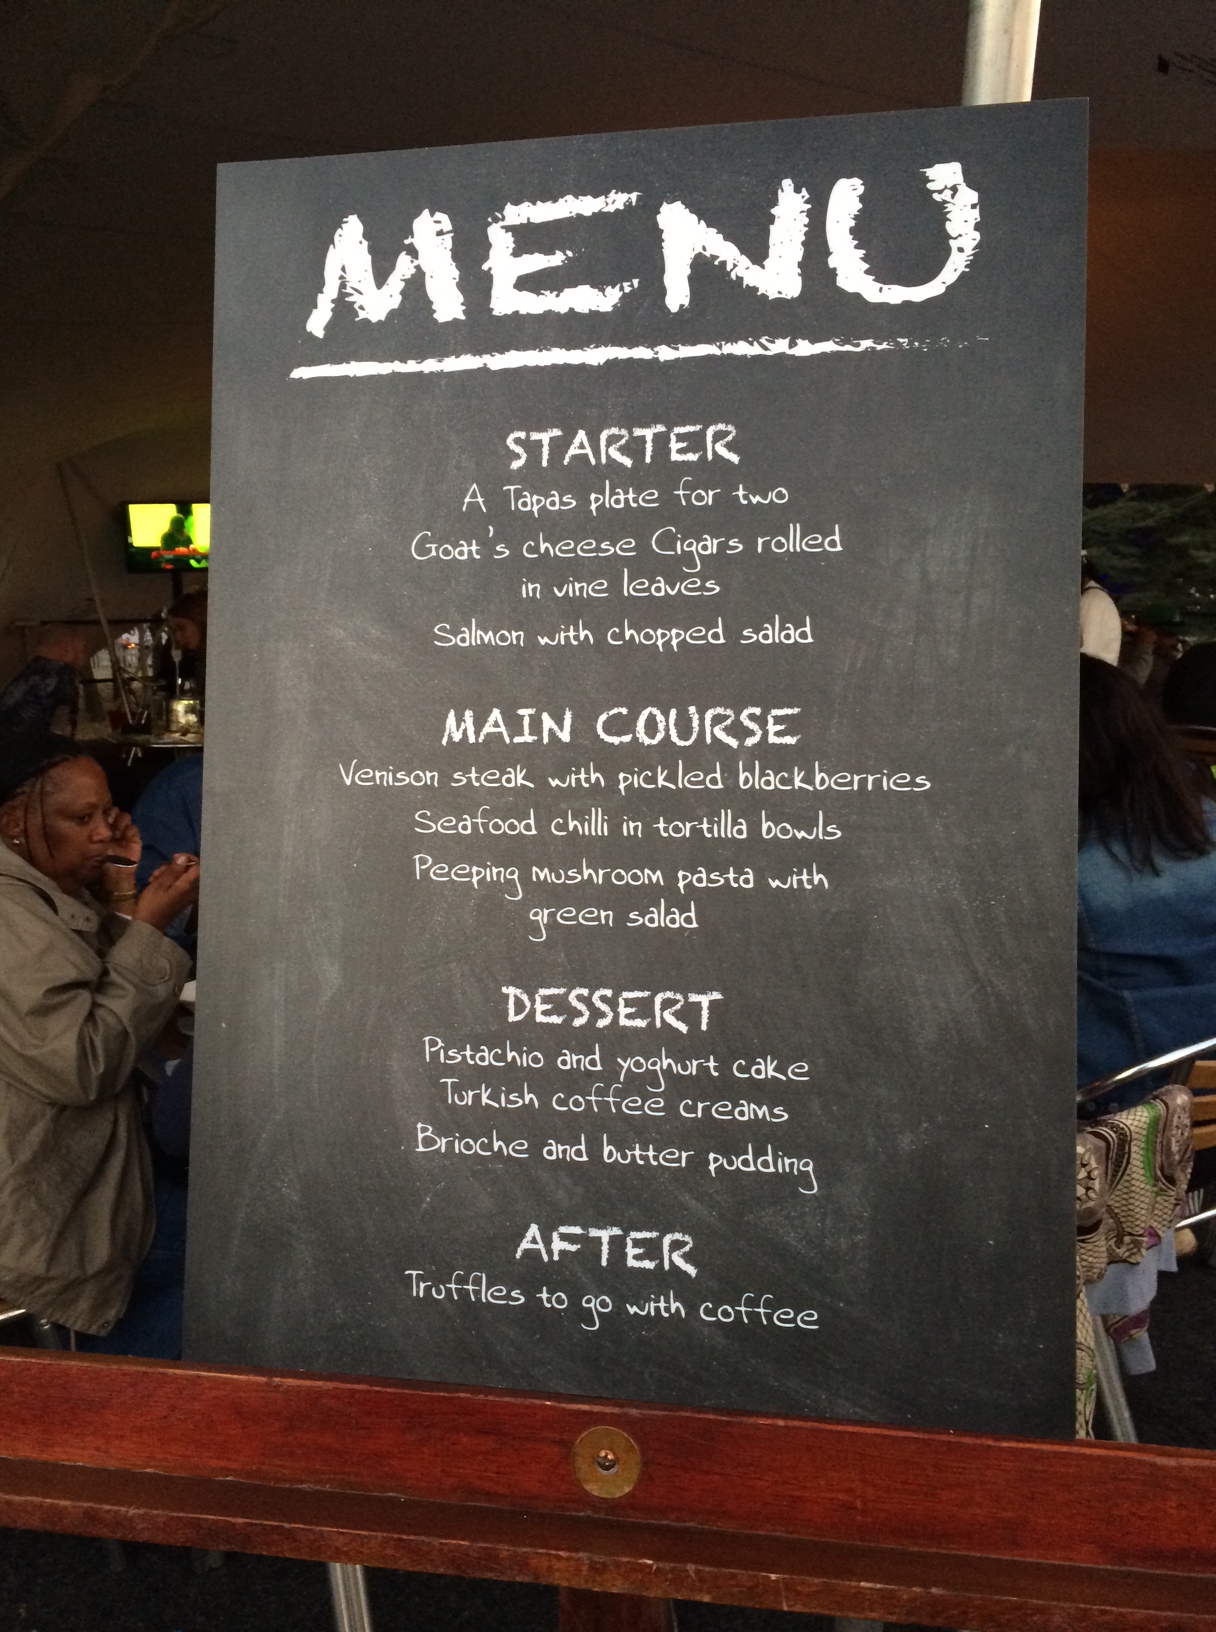 MENU
STARTER
A Tapas plate for two
Goat's cheese Cigars rolled
in vine leaves
Salmon with chopped salad
MAIN COURSE
Venison steak with pickled blackberries
Seafood chilli in tortilla bowls
Peeping mushroom pasta with
green salad
DESSERT
Pistachio and yoghurt cake
Turkish coffee creams
Brioche and butter pudding
AFTER
Truffles to go with coffee